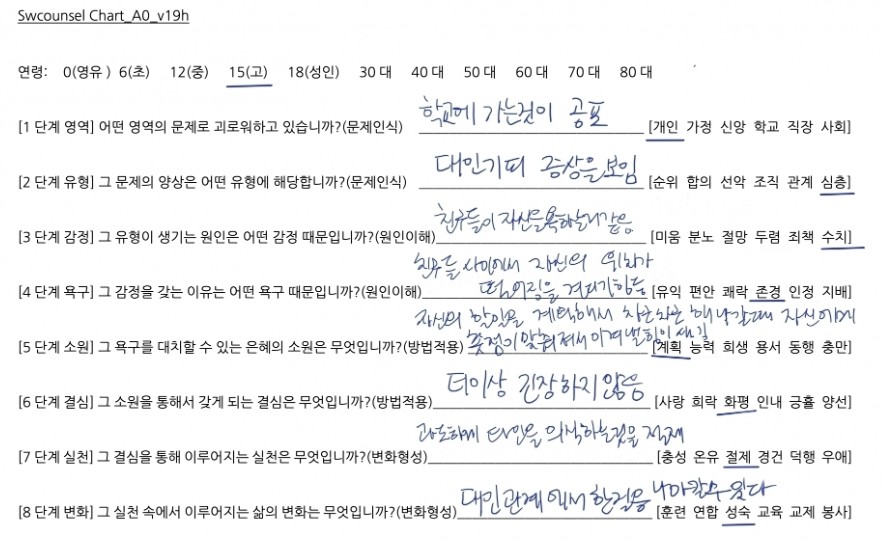 Swcounsel Chart_A0_v19h
연령: 0(영유 ) 6(초) 12(중) 15(고) 18(성인) 30 대 40 대 50 대 60 대 70 대 80 대
학교에 가는것이 공포
[1 단계 영역] 어떤 영역의 문제로 괴로워하고 있습니까?(문제인식) [개인 가정 신앙 학교 직장 사회]
대인기피 증상을 보임
[2 단계 유형] 그 문제의 양상은 어떤 유형에 해당합니까?(문제인식) [순위 합의 선악 조직 관계 심층]
친구들이 자신을 욕하는거 같음
[3 단계 감정] 그 유형이 생기는 원인은 어떤 감정 때문입니까?(원인이해) [미움 분노 절망 두렴 죄책 수치]
친구들 사이에서 자신의 위치가
떨어짐을 견디기힘듬
[4 단계 욕구] 그 감정을 갖는 이유는 어떤 욕구 때문입니까?(원인이해) [유익 편안 쾌락 존경 인정 지배]
자신의 할일을 계획해서 차근차근 해나갈때 자신에게
촛점이 맞춰져서 이겨낼 힘이 생김
[5 단계 소원] 그 욕구를 대치할 수 있는 은혜의 소원은 무엇입니까?(방법적용) [계획 능력 희생 용서 동행 충만]
더이상 긴장하지 않음
[6 단계 결심] 그 소원을 통해서 갖게 되는 결심은 무엇입니까?(방법적용) [사랑 희락 화평 인내 긍휼 양선]
과도하게 타인을 의식하는것을 절제
[7 단계 실천] 그 결심을 통해 이루어지는 실천은 무엇입니까?(변화형성) [충성 온유 절제 경건 덕행 우애]
대인관계에서 한걸음 나아갈수 있다
[8 단계 변화] 그 실천 속에서 이루어지는 삶의 변화는 무엇입니까?(변화형성) [훈련 연합 성숙 교육 교제 봉사]